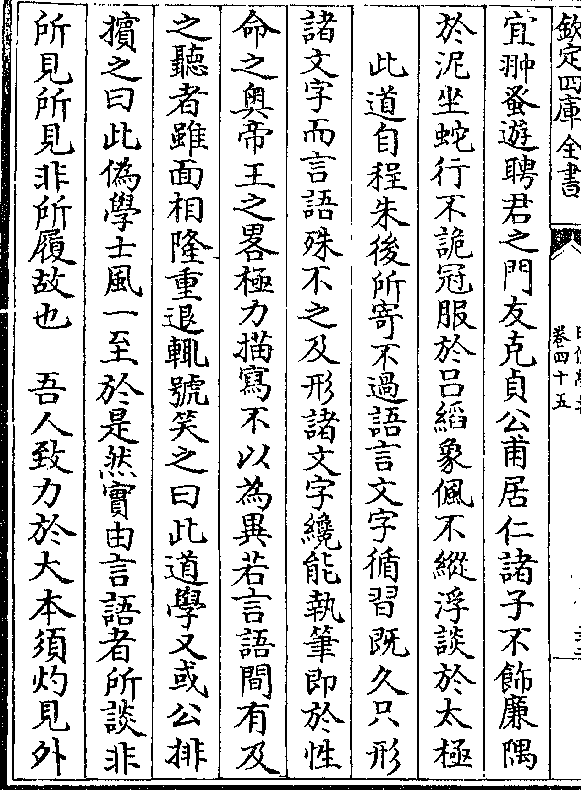 欽定四庫全書
卷四十五
宜翀蚤遊聘君之門友克貞公甫居仁諸子不飾廉隅
於泥坐蛇行不詭冠服於呂縚象佩不縱浮談於太極
此道自程朱後所寄不過語言文字循習既久只形
諸文字而言語殊不之及形諸文字纔能執筆即於性
命之奧帝王之畧極力描寫不以為異若言語間有及
之聽者雖面相隆重退輒號笑之曰此道學又或公排
擯之曰此偽學士風一至於是然實由言語者所談非
所見所見非所履故也　吾人致力於大本須灼見外